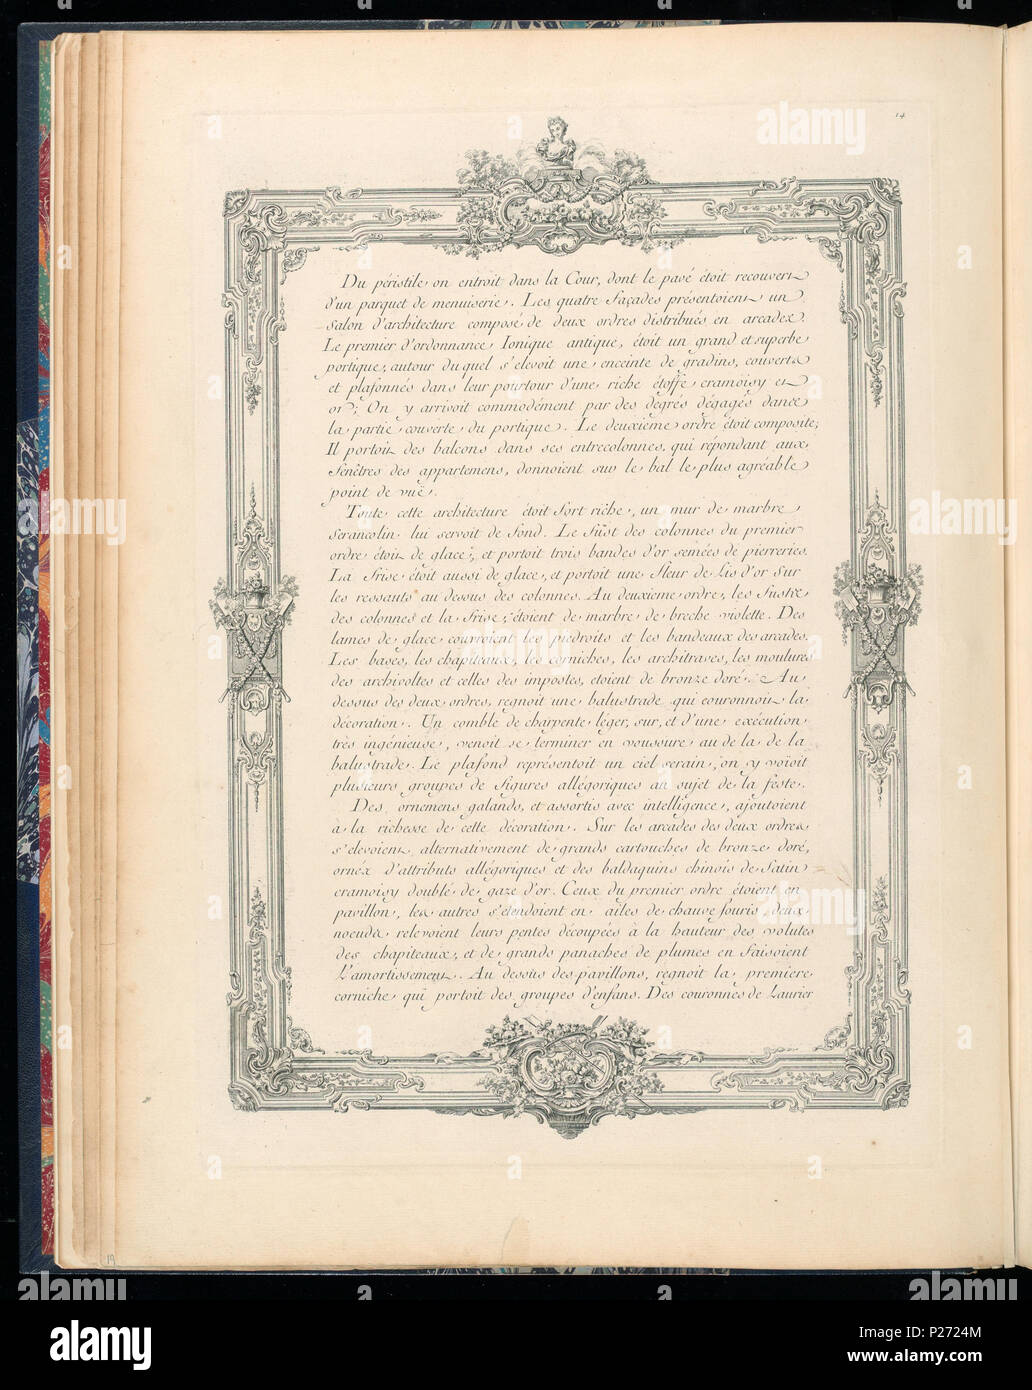 14
Du péristile on entroit dans la Cour, dont le pavé étoit recouvert
d'un parquet de menuiserie. Les quatre façades présentoient un
Salon d'architecture composé de deux ordres distribués en arcades.
Le premier d'ordonnance Ionique antique, étoit un grand et superbe
portique, autour du quel s'elevoit une enceinte de gradins, couverts
et plafonnés dans leur pourtour d'une riche étoffe cramoisy et
or; On y arrivoit commodément par des degrés dégagés dans
la partie couverte du portique. Le deuxième ordre étoit composite;
Il portoit des balcons dans ses entrecolonnes, qui répondant aux
fenêtres des appartemens, donnoient sur le bal le plus agréable
point de vuë.
Toute cette architecture étoit fort riche, un mur de marbre
serancolin lui servoit de fond. Le fust des colonnes du premier
ordre étoit de glace, et portoit trois bandes d'or semées de pierreries.
La frise étoit aussi de glace, et portoit une fleur de Lis d'or sur
les ressauts au dessus des colonnes. Au deuxième ordre, les fusts
des colonnes et la frise, étoient de marbre de breche violette. Des
lames de glace couvroient les piedroits et les bandeaux des arcades.
Les bases, les chapiteaux, les corniches, les architraves, les moulures
des archivoltes et celles des impostes, etoient de bronze doré. Au
dessus des deux ordres, regnoit une balustrade qui couronnoit la
décoration. Un comble de charpente léger, sur, et d'une exécution
très ingénieuse, venoit se terminer en voussure au de la de la
balustrade. Le plafond représentoit un ciel serain, on y voïoit
plusieurs groupes de figures allégoriques au sujet de la feste.
Des ornemens galands, et assortis avec intelligence, ajoutoient
à la richesse de cette décoration. Sur les arcades des deux ordres
s'elevoient alternativement de grands cartouches de bronze doré,
ornés d'attributs allégoriques et des baldaquins chinois de Satin
cramoisy doublé de gaze d'or. Ceux du premier ordre étoient en
pavillon, les autres s'étendoient en ailes de chauve souris, deux
noeuds relevoient leurs pentes découpées à la hauteur des volutes
des chapiteaux, et de grands panaches de plumes en faisoient
L'amortissement. Au dessus des pavillons, regnoit la premiere
corniche qui portoit des groupes d'enfans. Des couronnes de Laurier
19
alamy
alamy
Image ID: P2724M
www.alamy.com